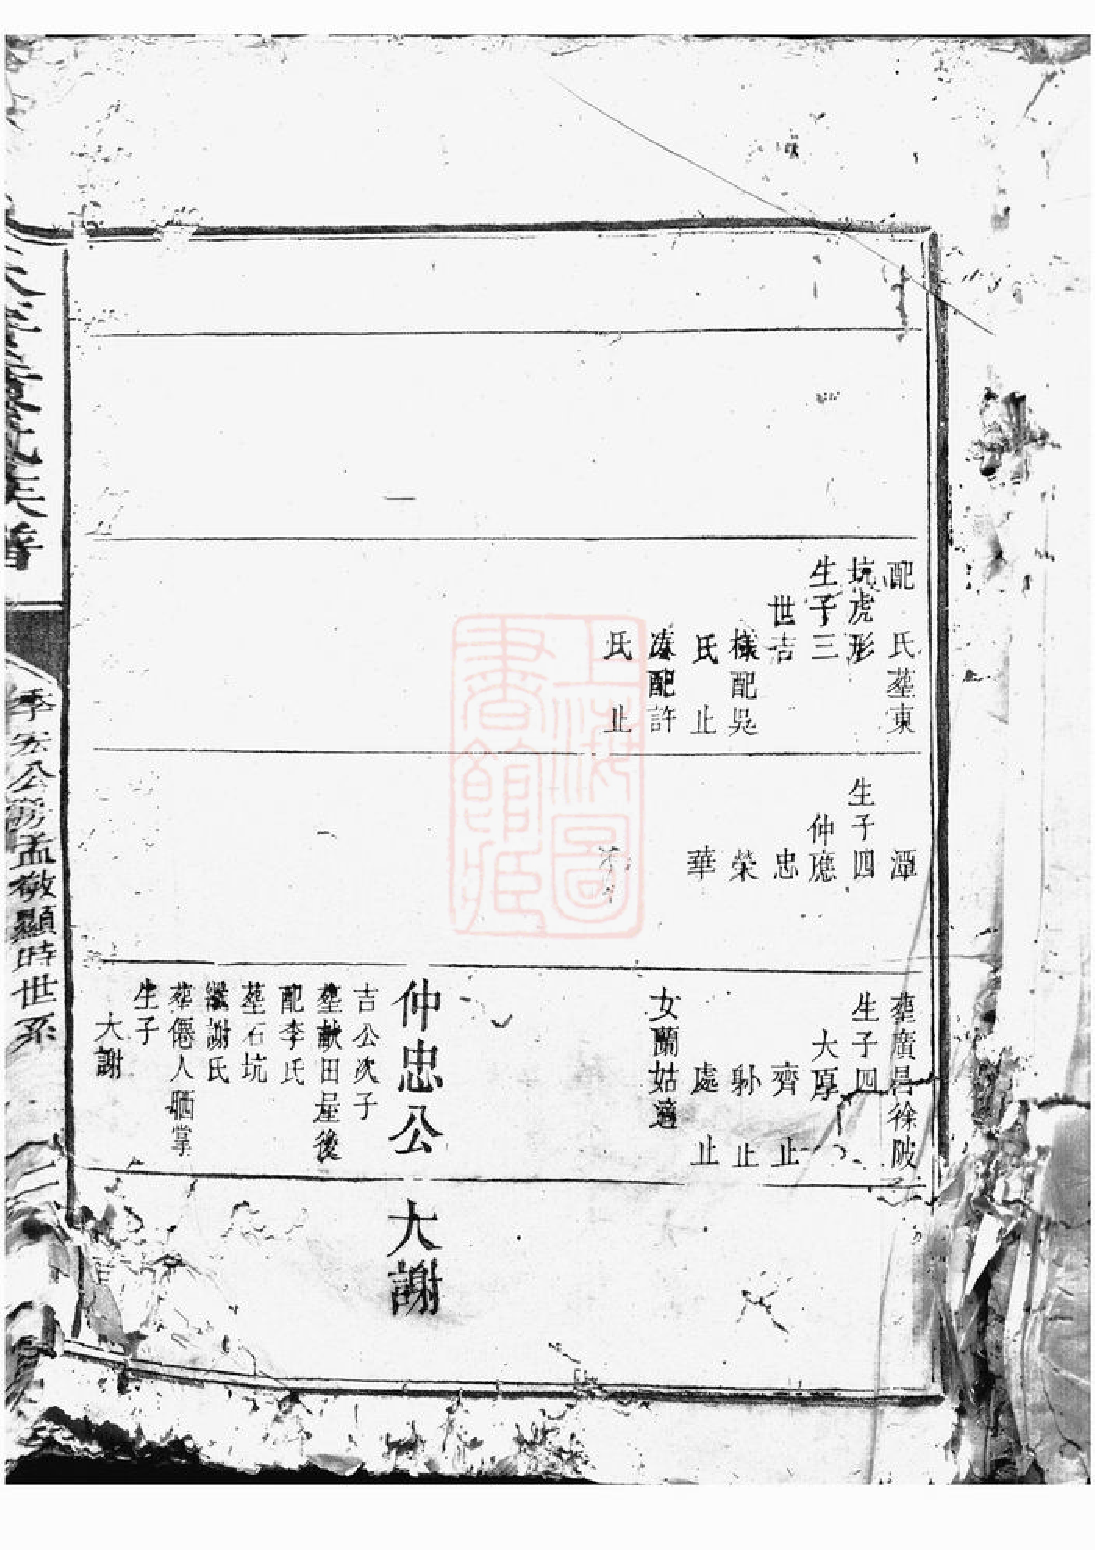 配　氏塟東
坑虎形
生子三
世吉
樣配吳
氏　止
凑配許
氏　止
潭
生子四
仲應
忠
榮
華
塟廣昌徐陂
生子四
大厚
齊　止
卧　止
處　止
女蘭姑適
仲忠公
吉公次子
塟獻田屋後
配李氏
塟石坑
繼謝氏
塟僊人晒掌
生子
大謝
大謝
族譜
季宏公房孟敬顯時世系
上海圖書館藏